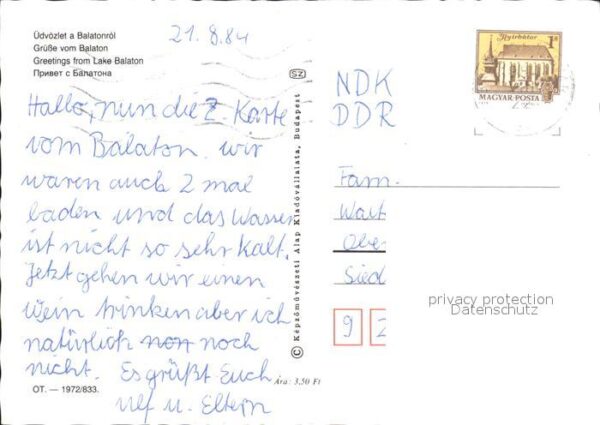 Üdvözlet a Balatonról
Grüße vom Balaton
Greetings from Lake Balaton
Привет с Балатона
21.8.84
Hallo, nun die 2. Karte
vom Balaton. wir
waren auch 2 mal
baden und das Wasser
ist nicht so sehr kalt.
Jetzt gehen wir einen
Wein trinken aber ich
natürlich noch
nicht. Es grüßt Euch
Ulf u. Eltern
OT. — 1972/833.
Ára: 3,50 Ft
SZ
© Képzőművészeti Alap Kiadóvállalata, Budapest
Nyírbátor
1Ft
MAGYAR POSTA
NDK
DDR
Fam.
Walt
Obe
Sied
9 2
privacy protection
Datenschutz